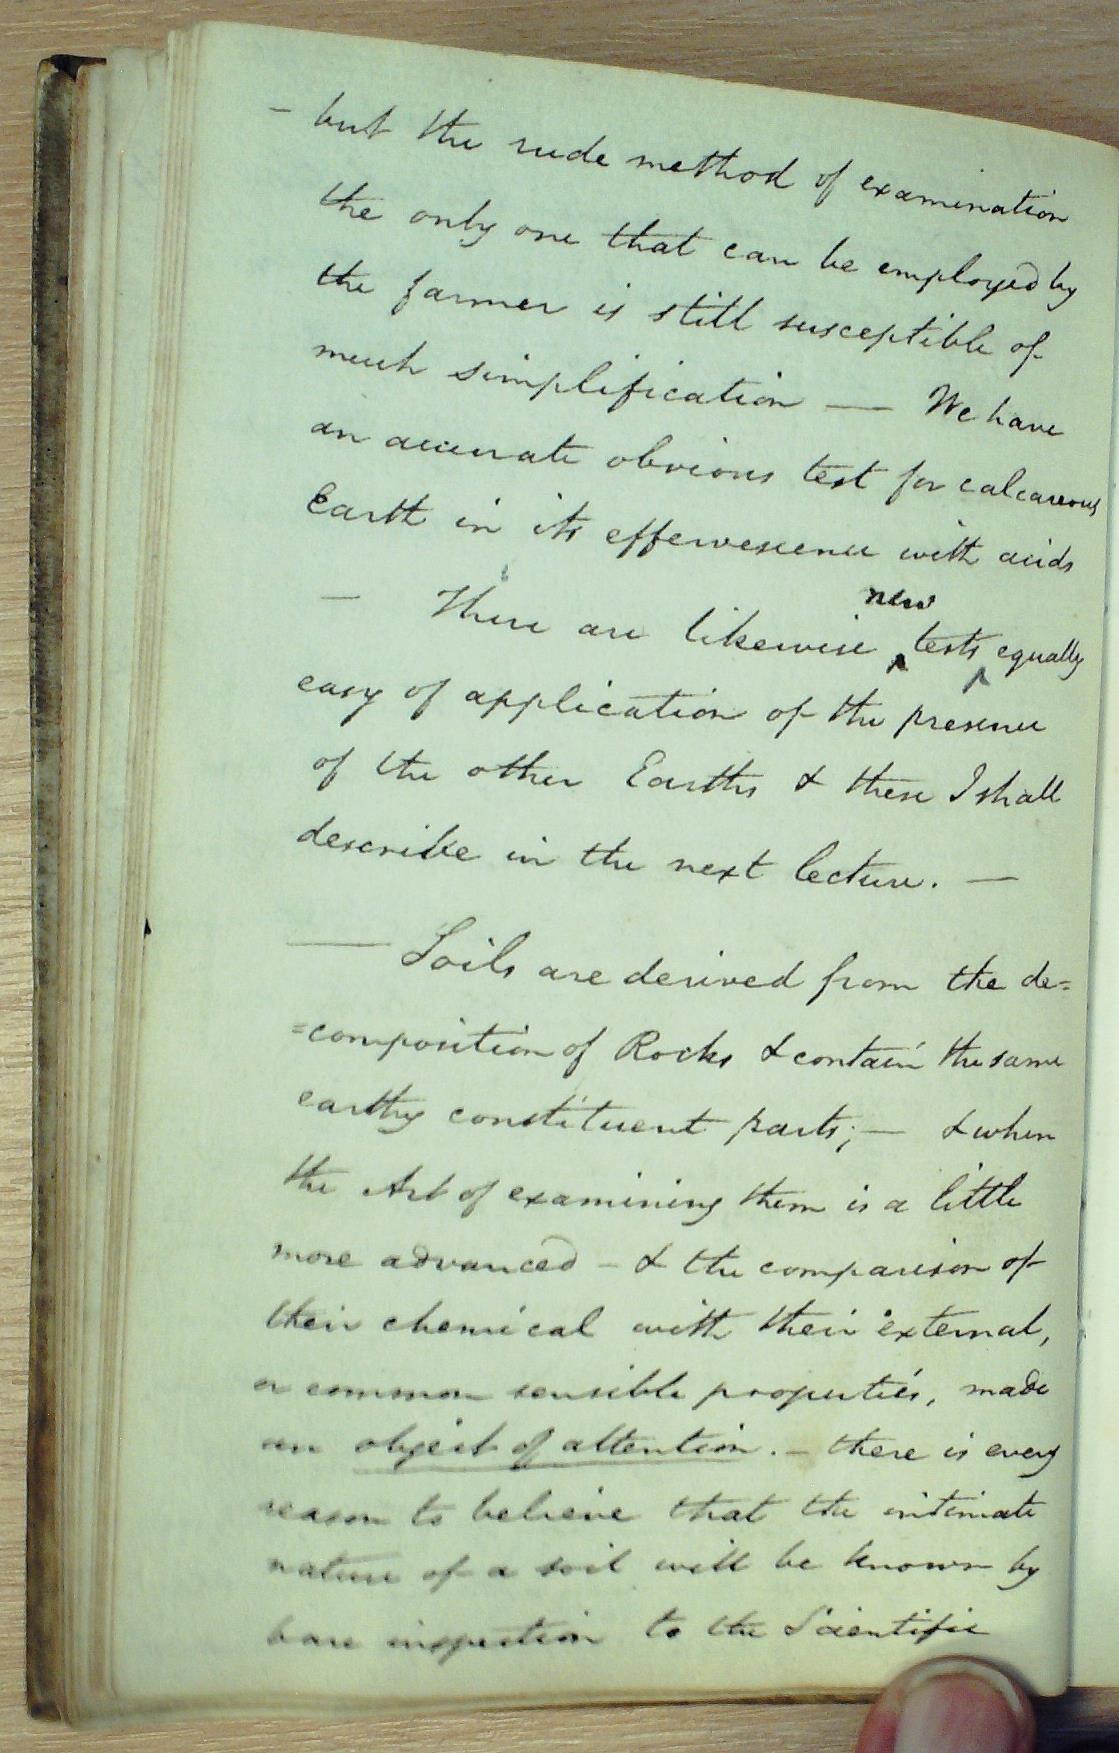 - but the rude method of examination
the only one that can be employed by
the farmer is still susceptible of
much simplification — We have
an accurate obvious test for calcareous
Earth in its effervescence with acids
— There are likewise ^new tests ^ equally
easy of application of the presence
of the other Earths & these I shall
describe in the next lecture. —
— Soils are derived from the de=
=composition of Rocks & contain the same
earthy constituent parts; — & when
the Art of examining them is a little
more advanced - & the comparison of
their chemical with their external,
or common sensible properties, made
an object of attention. - there is every
reason to believe that the intimate
nature of a soil will be known by
bare inspection to the Scientific